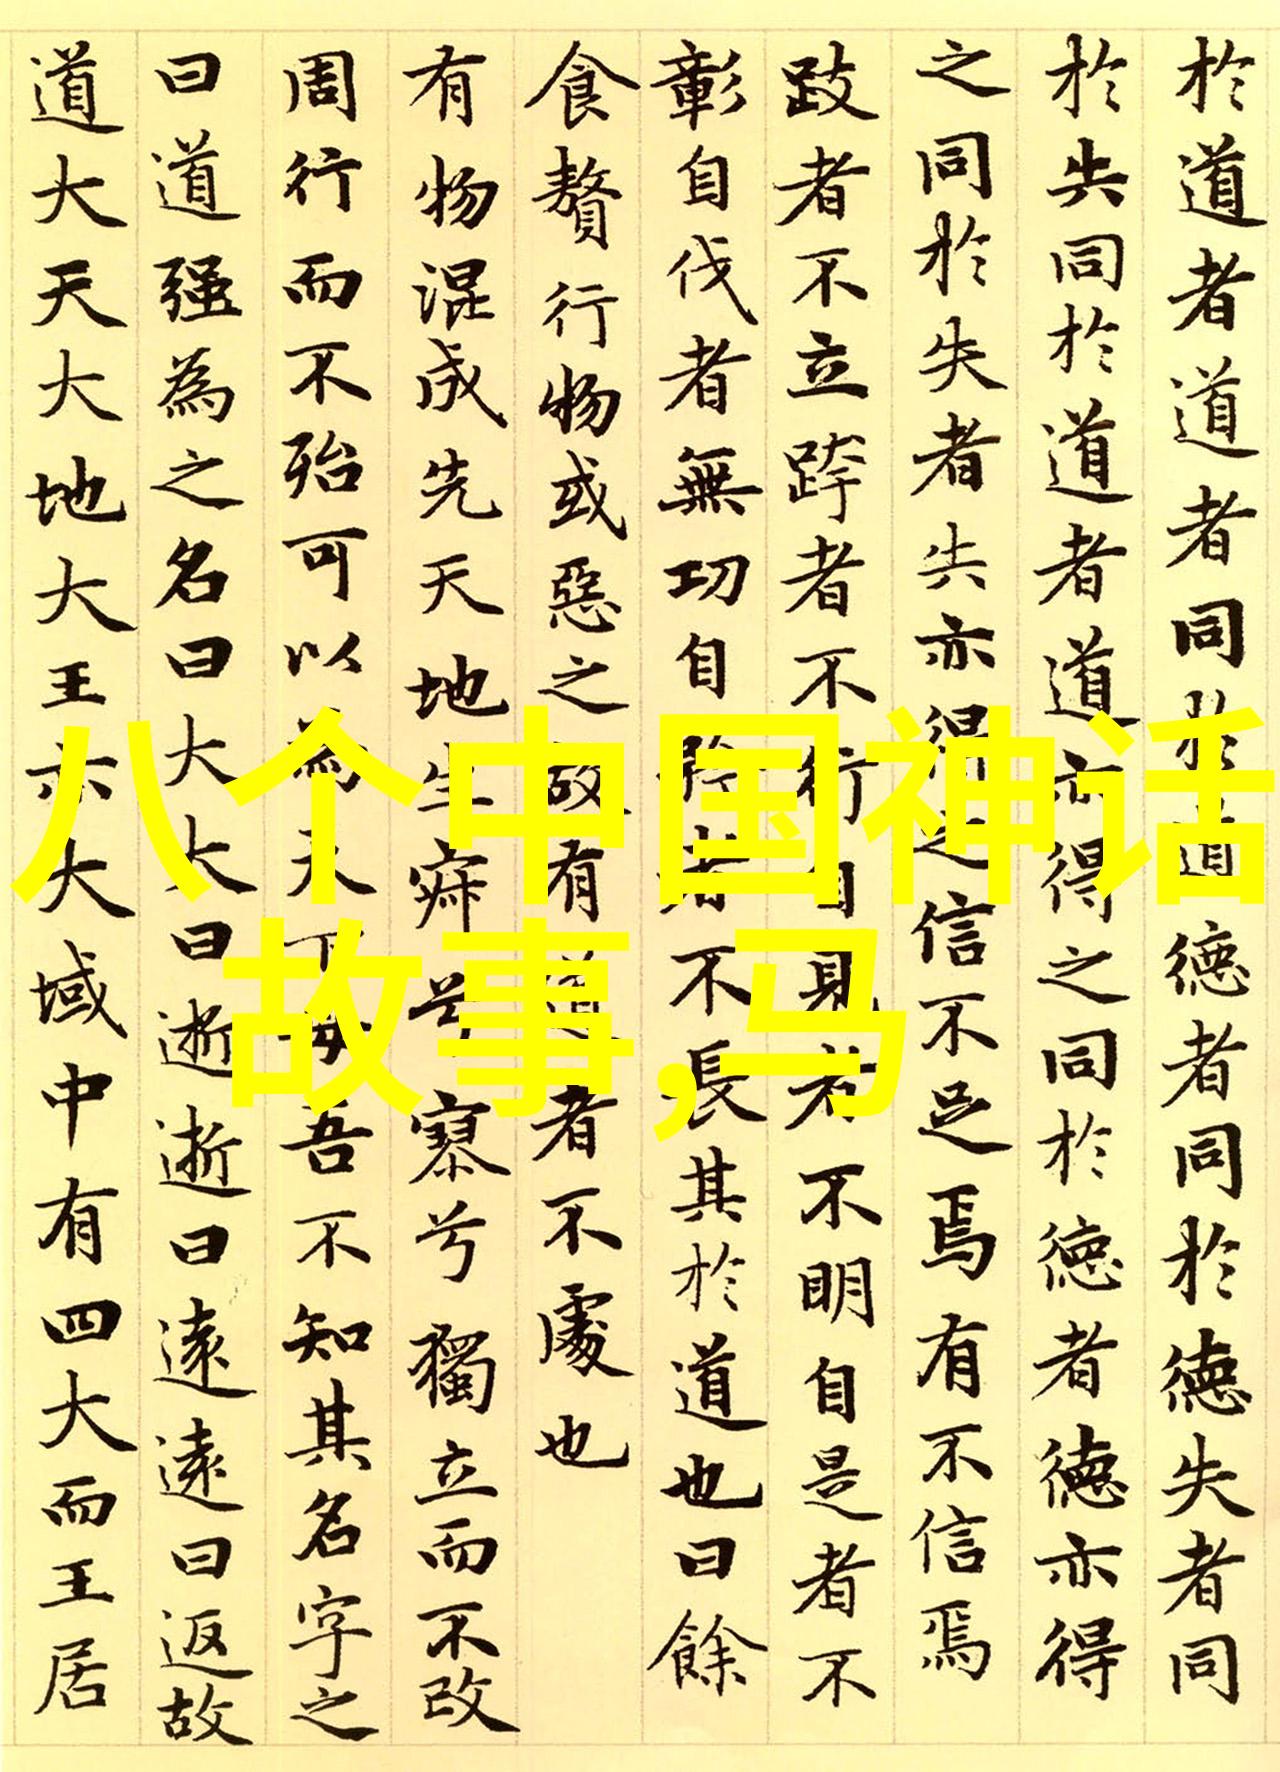 於道者道者同於道德者同於德失者同
於失同於道者道亦得之同於德者德亦得
之同於失者失亦得之信不足焉有不信焉
跂者不立跨者不行自見者不明自是者不
彰自伐者無功自矜者不長其於道也曰餘
食贅行物或惡之故有道者不處也
有物混成先天地生寂兮寥兮獨立而不改
周行而不殆可以為天下母吾不知其名字之
曰道强為之名曰大大曰逝逝曰遠遠曰返故
道大天大地大王亦大域中有四大而王居
八个中国神话
故事,马